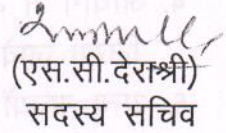 (एस.सी.देराश्री)
सदस्य सचिव